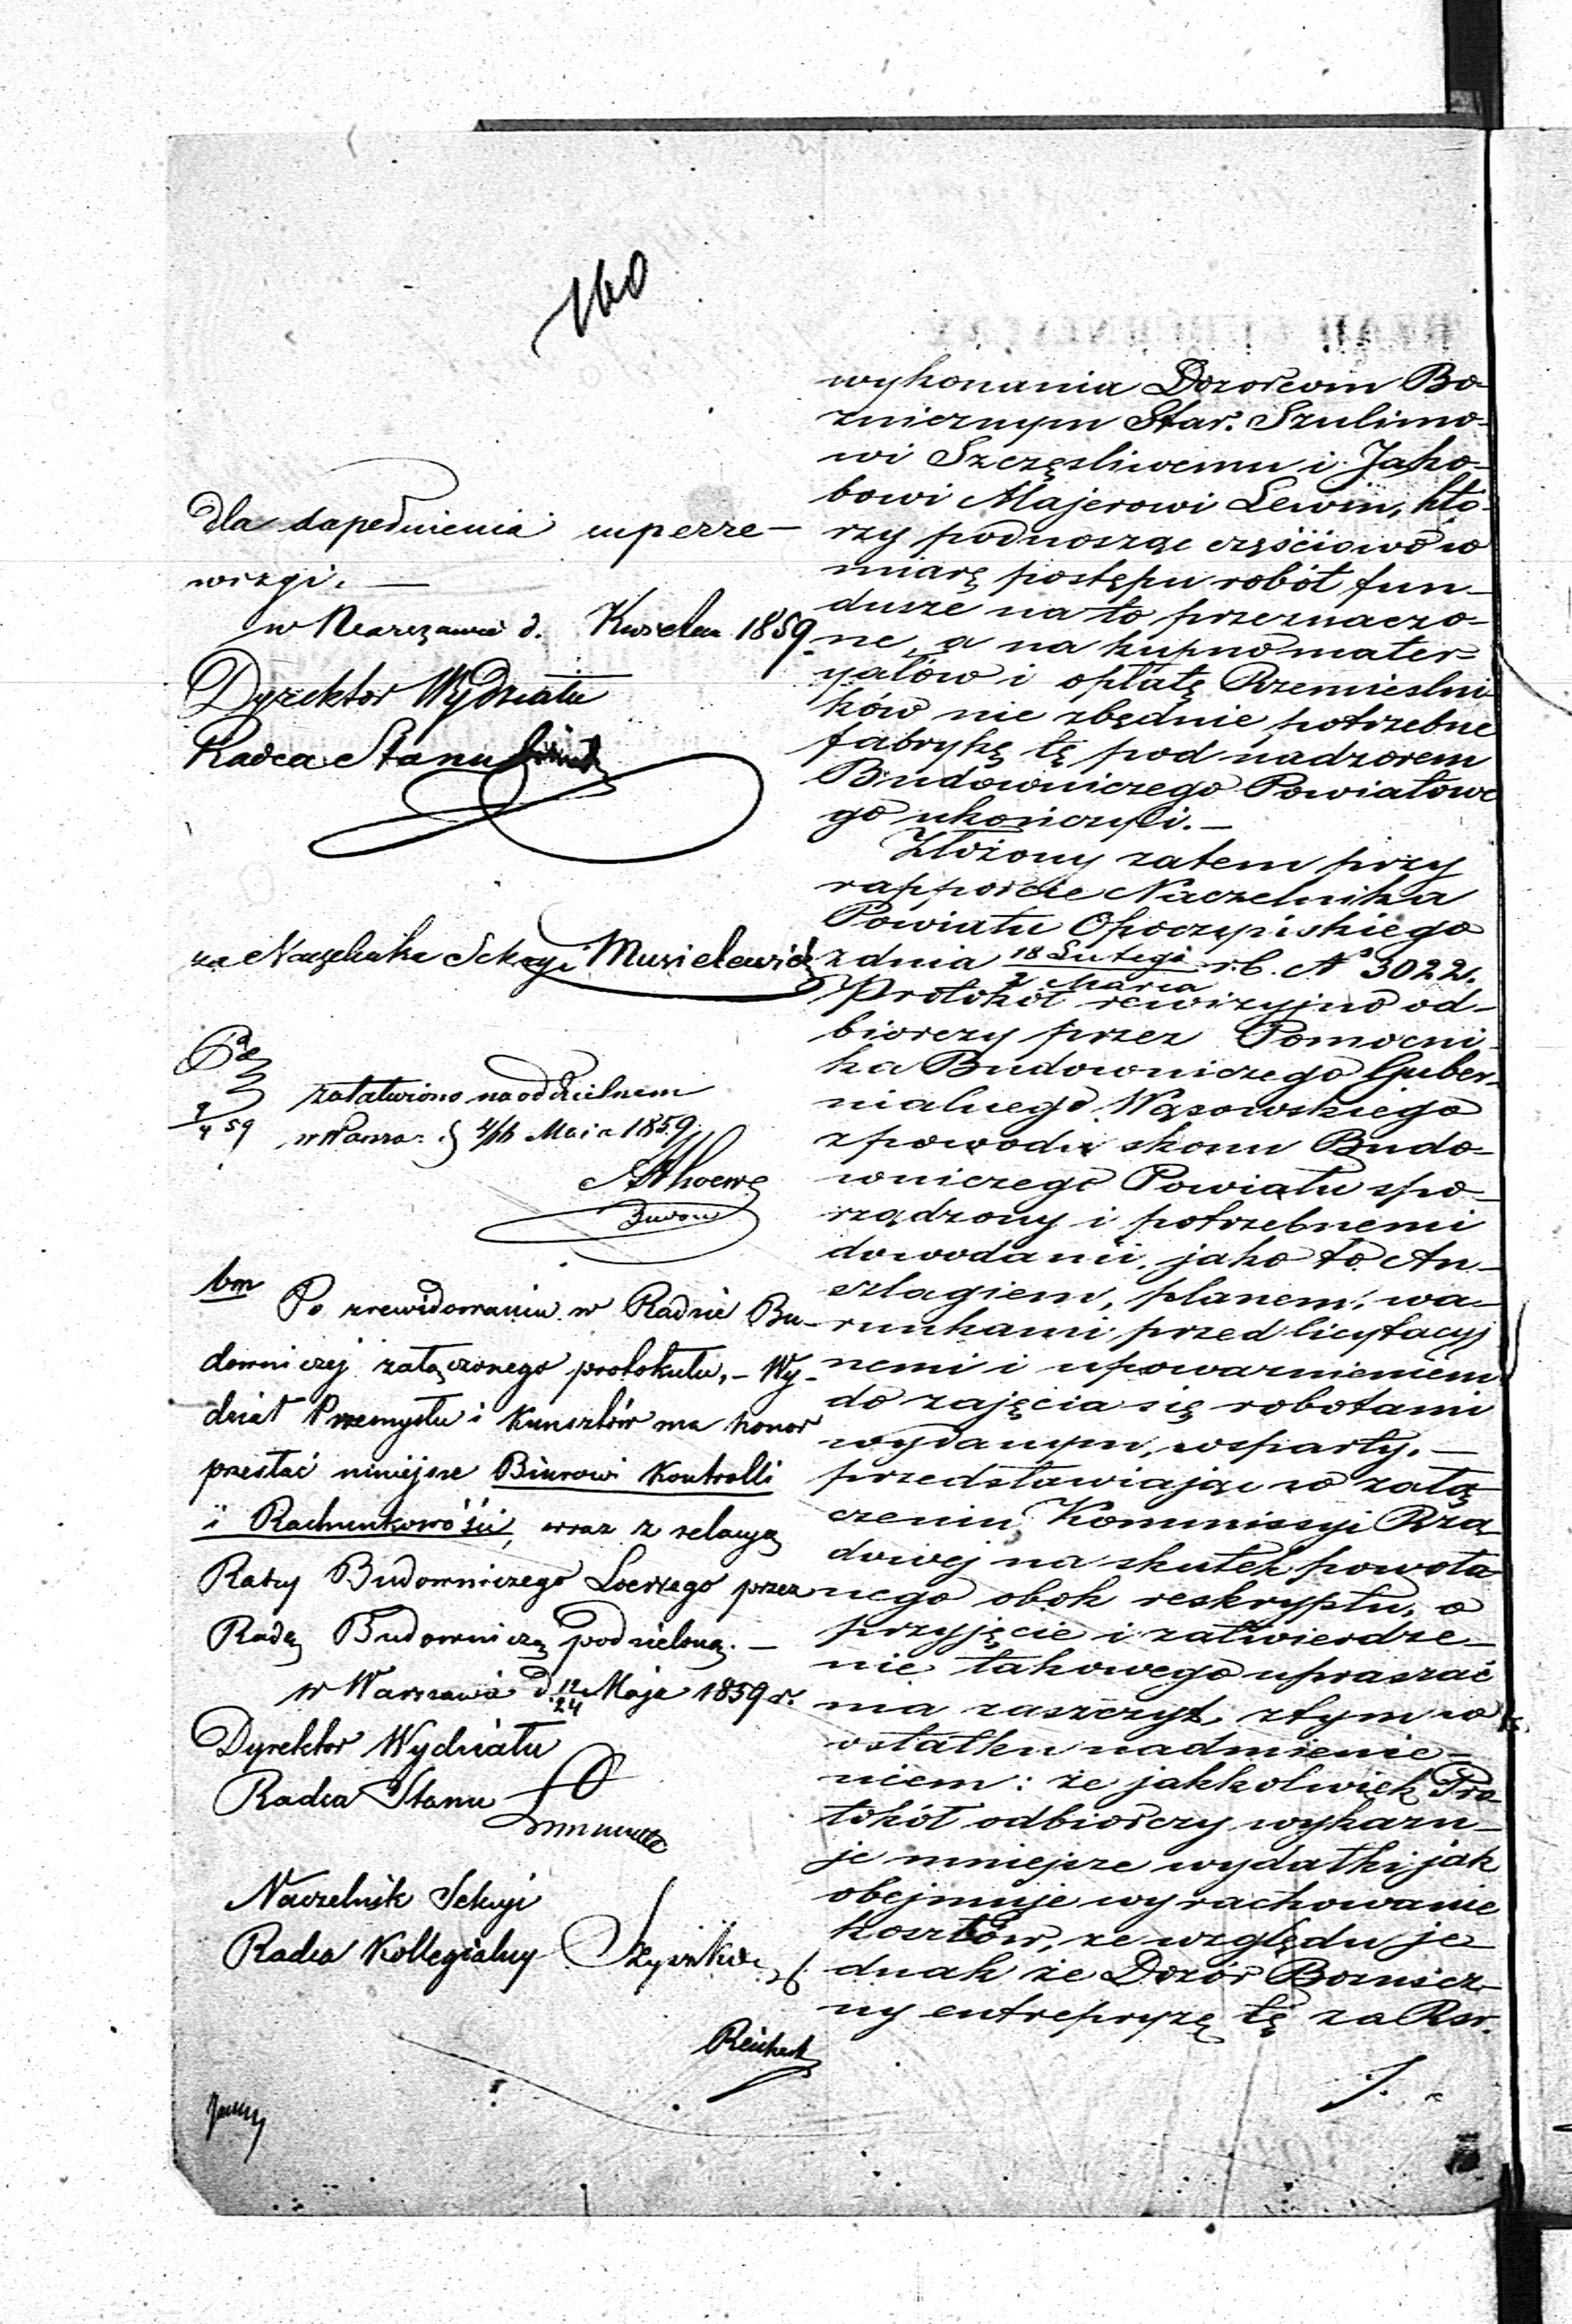 160
dla dopełnienia superre-
wizyi. —
w Warszawie d. Kwietnia 1859.
Dyrektor Wydziału
Radca Stanu
za Naczelnika Sekcyi Musielewicz
załatwiono na oddzielnem
w Warsza. d. 4/16 Maia 1859.
bm
Po zrewidowaniu w Radzie Bu-
downiczej załączonego protokułu, – Wy-
dział Przemysłu i Kunsztów ma honor
przesłać niniejsze Biurowi Kontrolli
i Rachunkowości, wraz z relacyą
Radzy Budowniczego przez
Radę Budowniczą podzieloną. —
w Warszawie d. 12/24 Maja 1859 r.
Dyrektor Wydziału
Radca Stanu
Naczelnik Sekcyi
Radca Kollegialny
wykonania Dozorcom Bo-
znicznym Star. Szulimo-
wi Szczęsliwemu i Jako-
bowi Majerowi Lewin, któ-
rzy podnosząc częściowo w
miarę postępu robót fun-
dusze na to przeznaczo-
ne, a na kupno mater-
yałów i opłatę Rzemieslni
ków nie zbędnie potrzebne
fabrykę tę pod nadzorem
Budowniczego Powiatowe
go ukończyli. —
Złożony zatem przy
rapporcie Naczelnika
Powiatu Opoczyńskiego
z dnia 18 Lutego / 2 Marca r.b. No 3022.
Protokół rewizyjno od-
biorczy przez Pomocni-
ka Budowniczego Guber-
nialnego Wąsowskiego
z powodu skonu Budo-
wniczego Powiatu spo-
rządzony i potrzebnemi
dowodami, jako to An-
szlagiem, planem, wa-
runkami przed licytacyj
nemi i upoważnieniem
do zajęcia się robotami
wydanym, wsparty. —
przedstawiając w załą
czeniu Kommissyi Rzą
dowej na skutek powoła
nego obok reskryptu, o
przyjęcie i zatwierdze-
nie takowego upraszać
ma zaszczyt, z tym w
ostatku nadmienie-
niem: że jakkolwiek Pro
tokół odbiorczy wykazu-
je mniejsze wydatki jak
obejmuje wyrachowanie
kosztów, ze względu je-
dnak że Dozór Boznicz-
ny entrepryzę tę za Rsr.